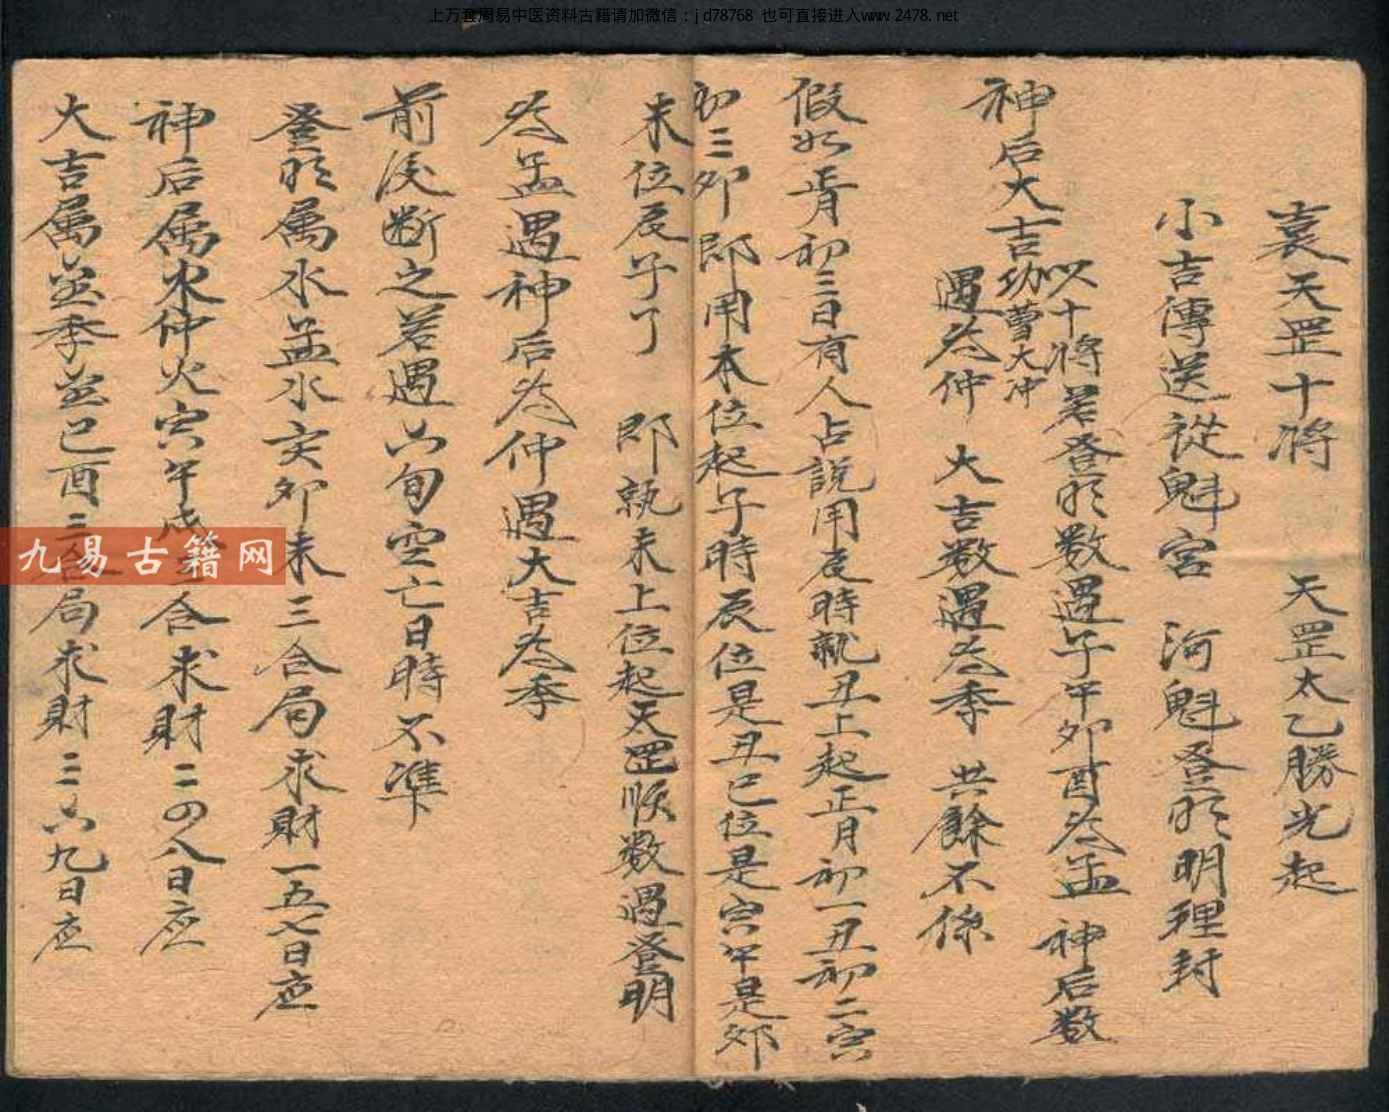 上万套周易中医资料古籍请加微信：jd78768 也可直接进入www.2478.net
袁天罡十将 天罡太乙勝光起
小吉傳送從魁宮 河魁登明明理封
神后大吉功曹大冲
以十將若登明数遇子午卯酉为孟 神后数
遇为仲 大吉数遇为季 其餘不係
假如正月初三日有人占説用辰時就丑上起正月初一丑初二寅
初三卯 即用本位起子時辰位是丑巳位是寅午是卯
未位辰字了 即執未上位起天罡順数遇登明
为孟遇神后为仲遇大吉为季
前後断之若遇六旬空亡日時不準
登明属水孟水亥卯未三合局求財一五七日应
神后属火仲火寅午戌三合求財二四八日应
大吉属金季金巳酉三合局求財三六九日应
九易古籍网